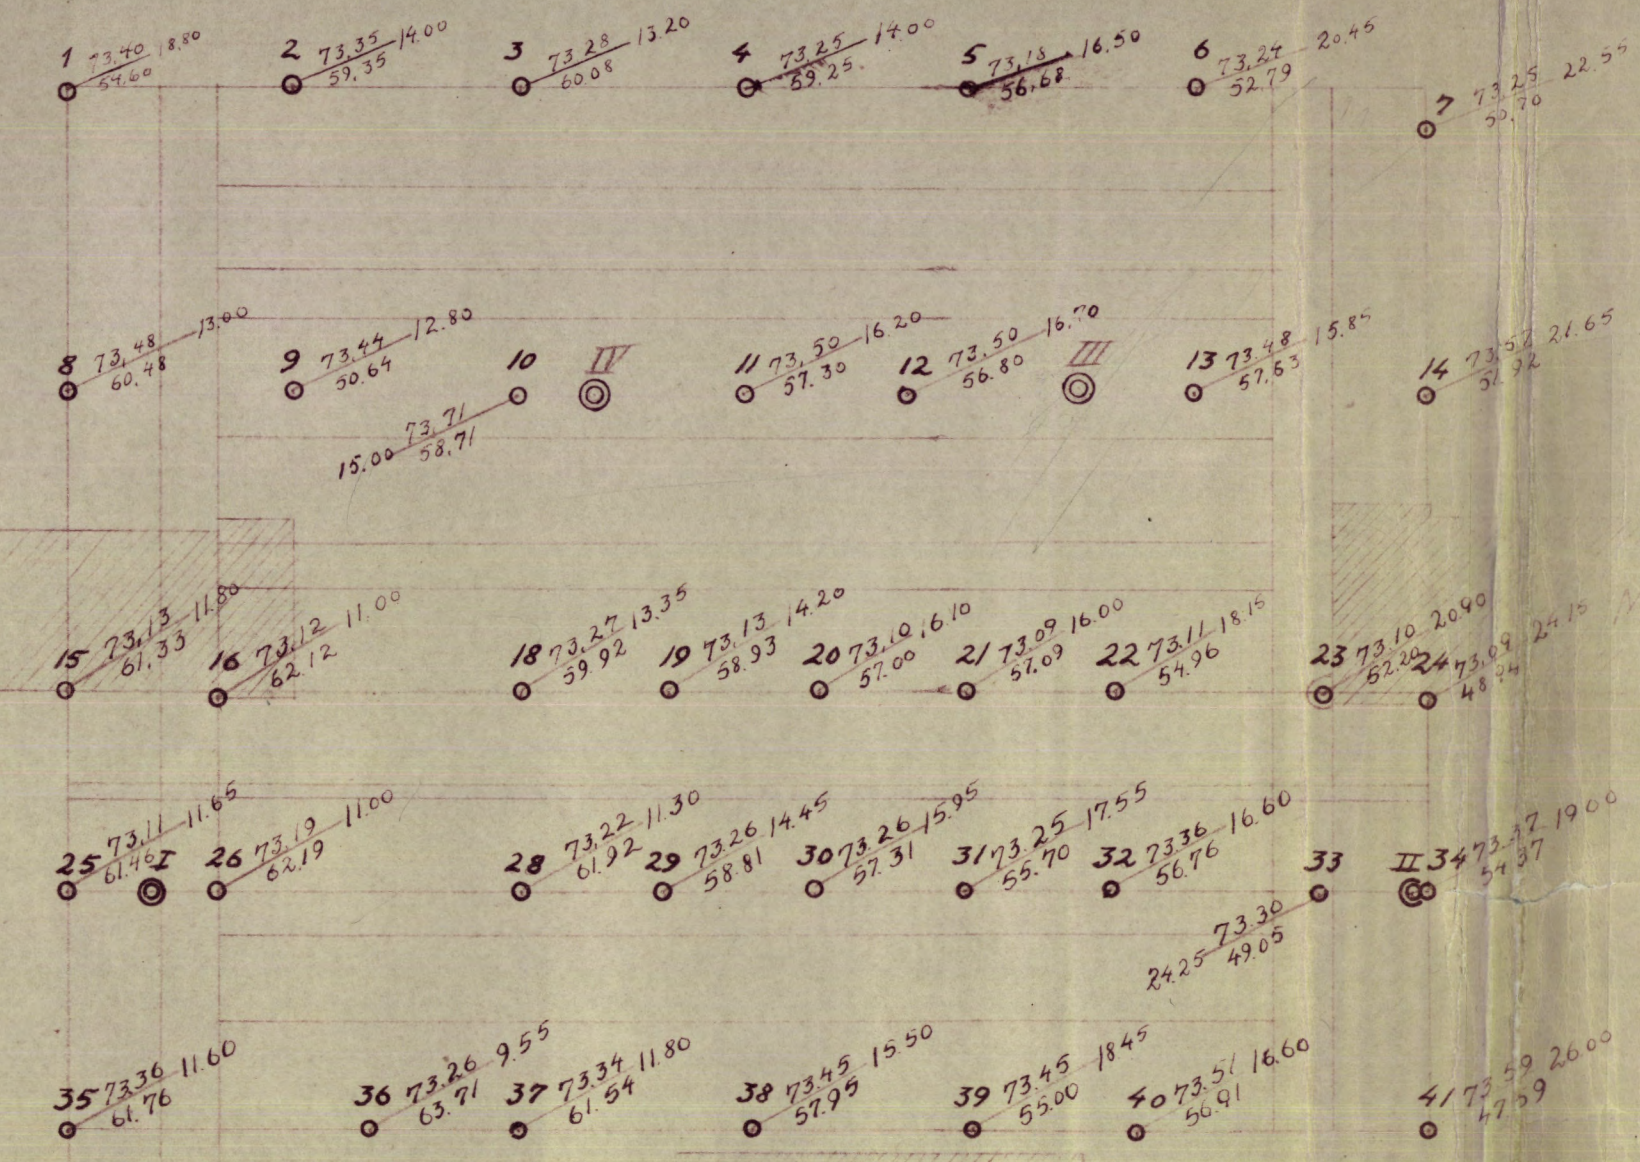 1 73.40 18.80
54.60
2 73.35 14.00
59.35
3 73.28 13.20
60.08
4 73.25 14.00
59.25
5 73.18 16.50
56.68
6 73.24 20.45
52.79
7 73.25 22.55
50.70
8 73.48 13.00
60.48
9 73.44 12.80
50.64
10
73.71
15.00 58.71
IV
11 73.50 16.20
57.30
12 73.50 16.70
56.80
III
13 73.48 15.85
57.63
14 73.57 21.65
51.92
15 73.13 11.80
61.33
16 73.12 11.00
62.12
18 73.27 13.35
59.92
19 73.13 14.20
58.93
20 73.10 16.10
57.00
21 73.09 16.00
57.09
22 73.11 18.15
54.96
23 73.10 20.90
52.20
24 73.09 24.15
48.94
25 73.11 11.65
61.46
I
26 73.19 11.00
62.19
28 73.22 11.30
61.92
29 73.26 14.45
58.81
30 73.26 15.95
57.31
31 73.25 17.55
55.70
32 73.36 16.60
56.76
33
73.30
24.25 49.05
II
34 73.37 19.00
54.37
35 73.36 11.60
61.76
36 73.26 9.55
63.71
37 73.34 11.80
61.54
38 73.45 15.50
57.95
39 73.45 18.45
55.00
40 73.51 16.60
56.91
41 73.59 26.00
47.59